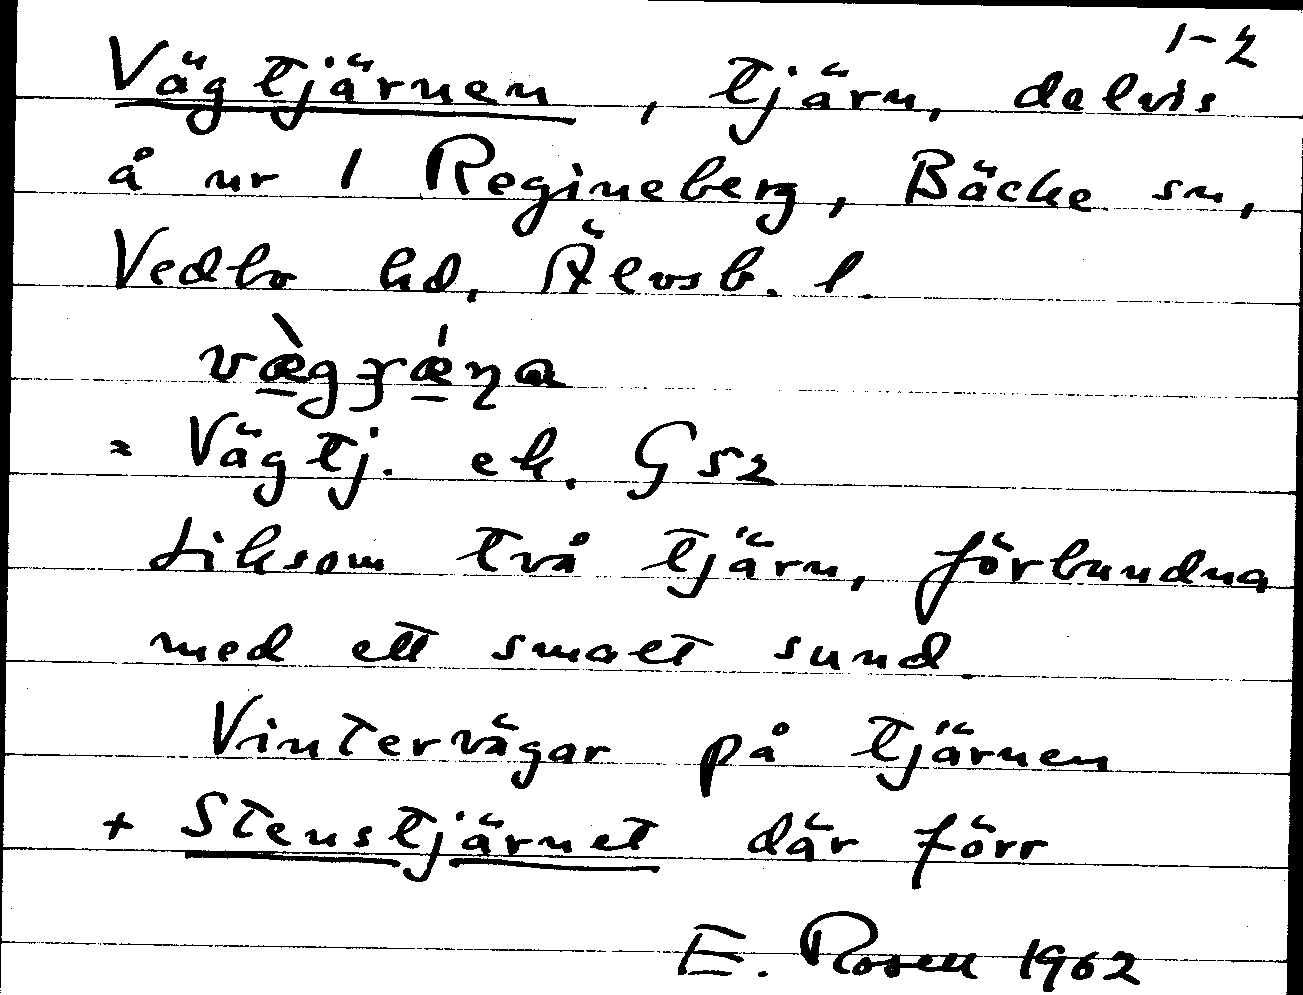 1-2
Vägtjärnen, tjärn, delvis
å nr 1 Regineberg, Bäcke sn,
Vedbo hd, Älvsb. l.
= Vägtj. ek. G 52
Liksom två tjärn, förbundna
med ett smalt sund.
Vintervägar på tjärnen
+ Stenstjärnet där förr
E. Rosell 1962